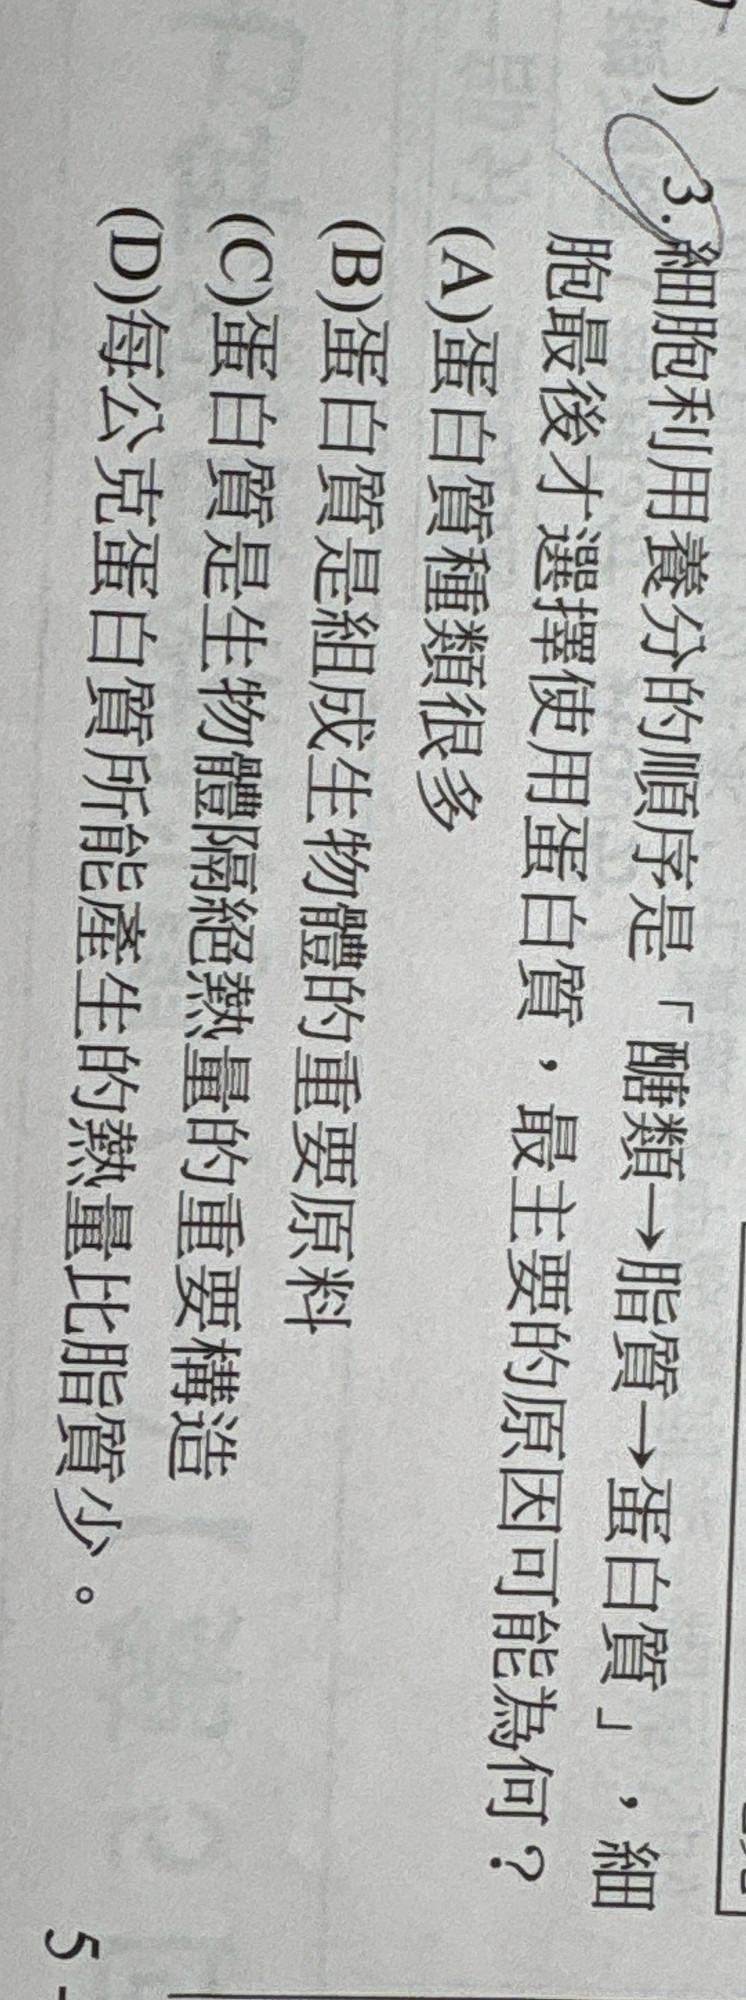 ) 3.細胞利用養分的順序是「醣類→脂質→蛋白質」，細
胞最後才選擇使用蛋白質，最主要的原因可能為何？
(A)蛋白質種類很多
(B)蛋白質是組成生物體的重要原料
(C)蛋白質是生物體隔絕熱量的重要構造
(D)每公克蛋白質所能產生的熱量比脂質少。
5 -